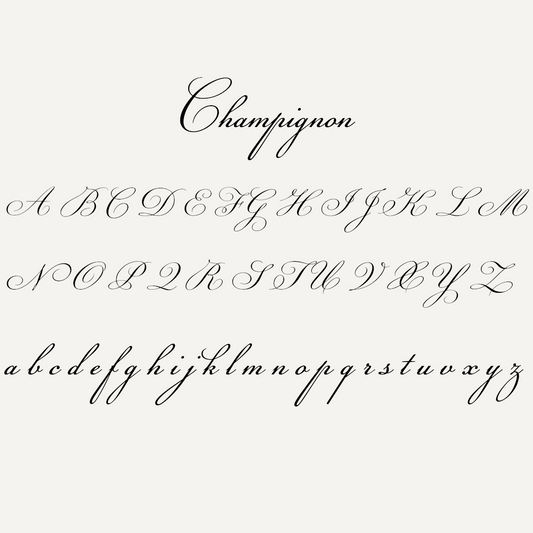 Champignon
A B C D E F G H I J K L M
N O P Q R S T U V X Y Z
a b c d e f g h i j k l m n o p q r s t u v x y z